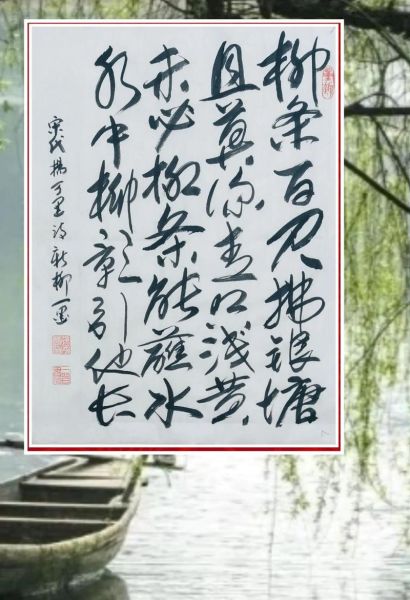 柳条百尺拂银塘
且莫深青只浅黄
未必柳条能蘸水
水中柳影引他长
宋代杨万里诗新柳 一墨